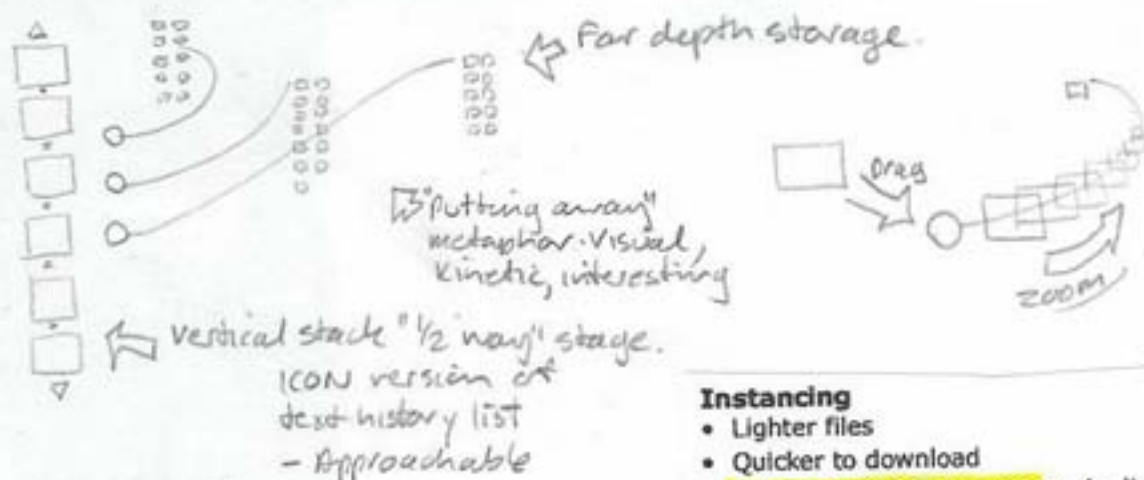 Far depth storage.
"Putting away"
metaphor. Visual,
kinetic, interesting
Drag
ZOOM
Vertical stack "1/2 way" stage.
ICON version of
text history list
- Approachable
Instancing
• Lighter files
• Quicker to download